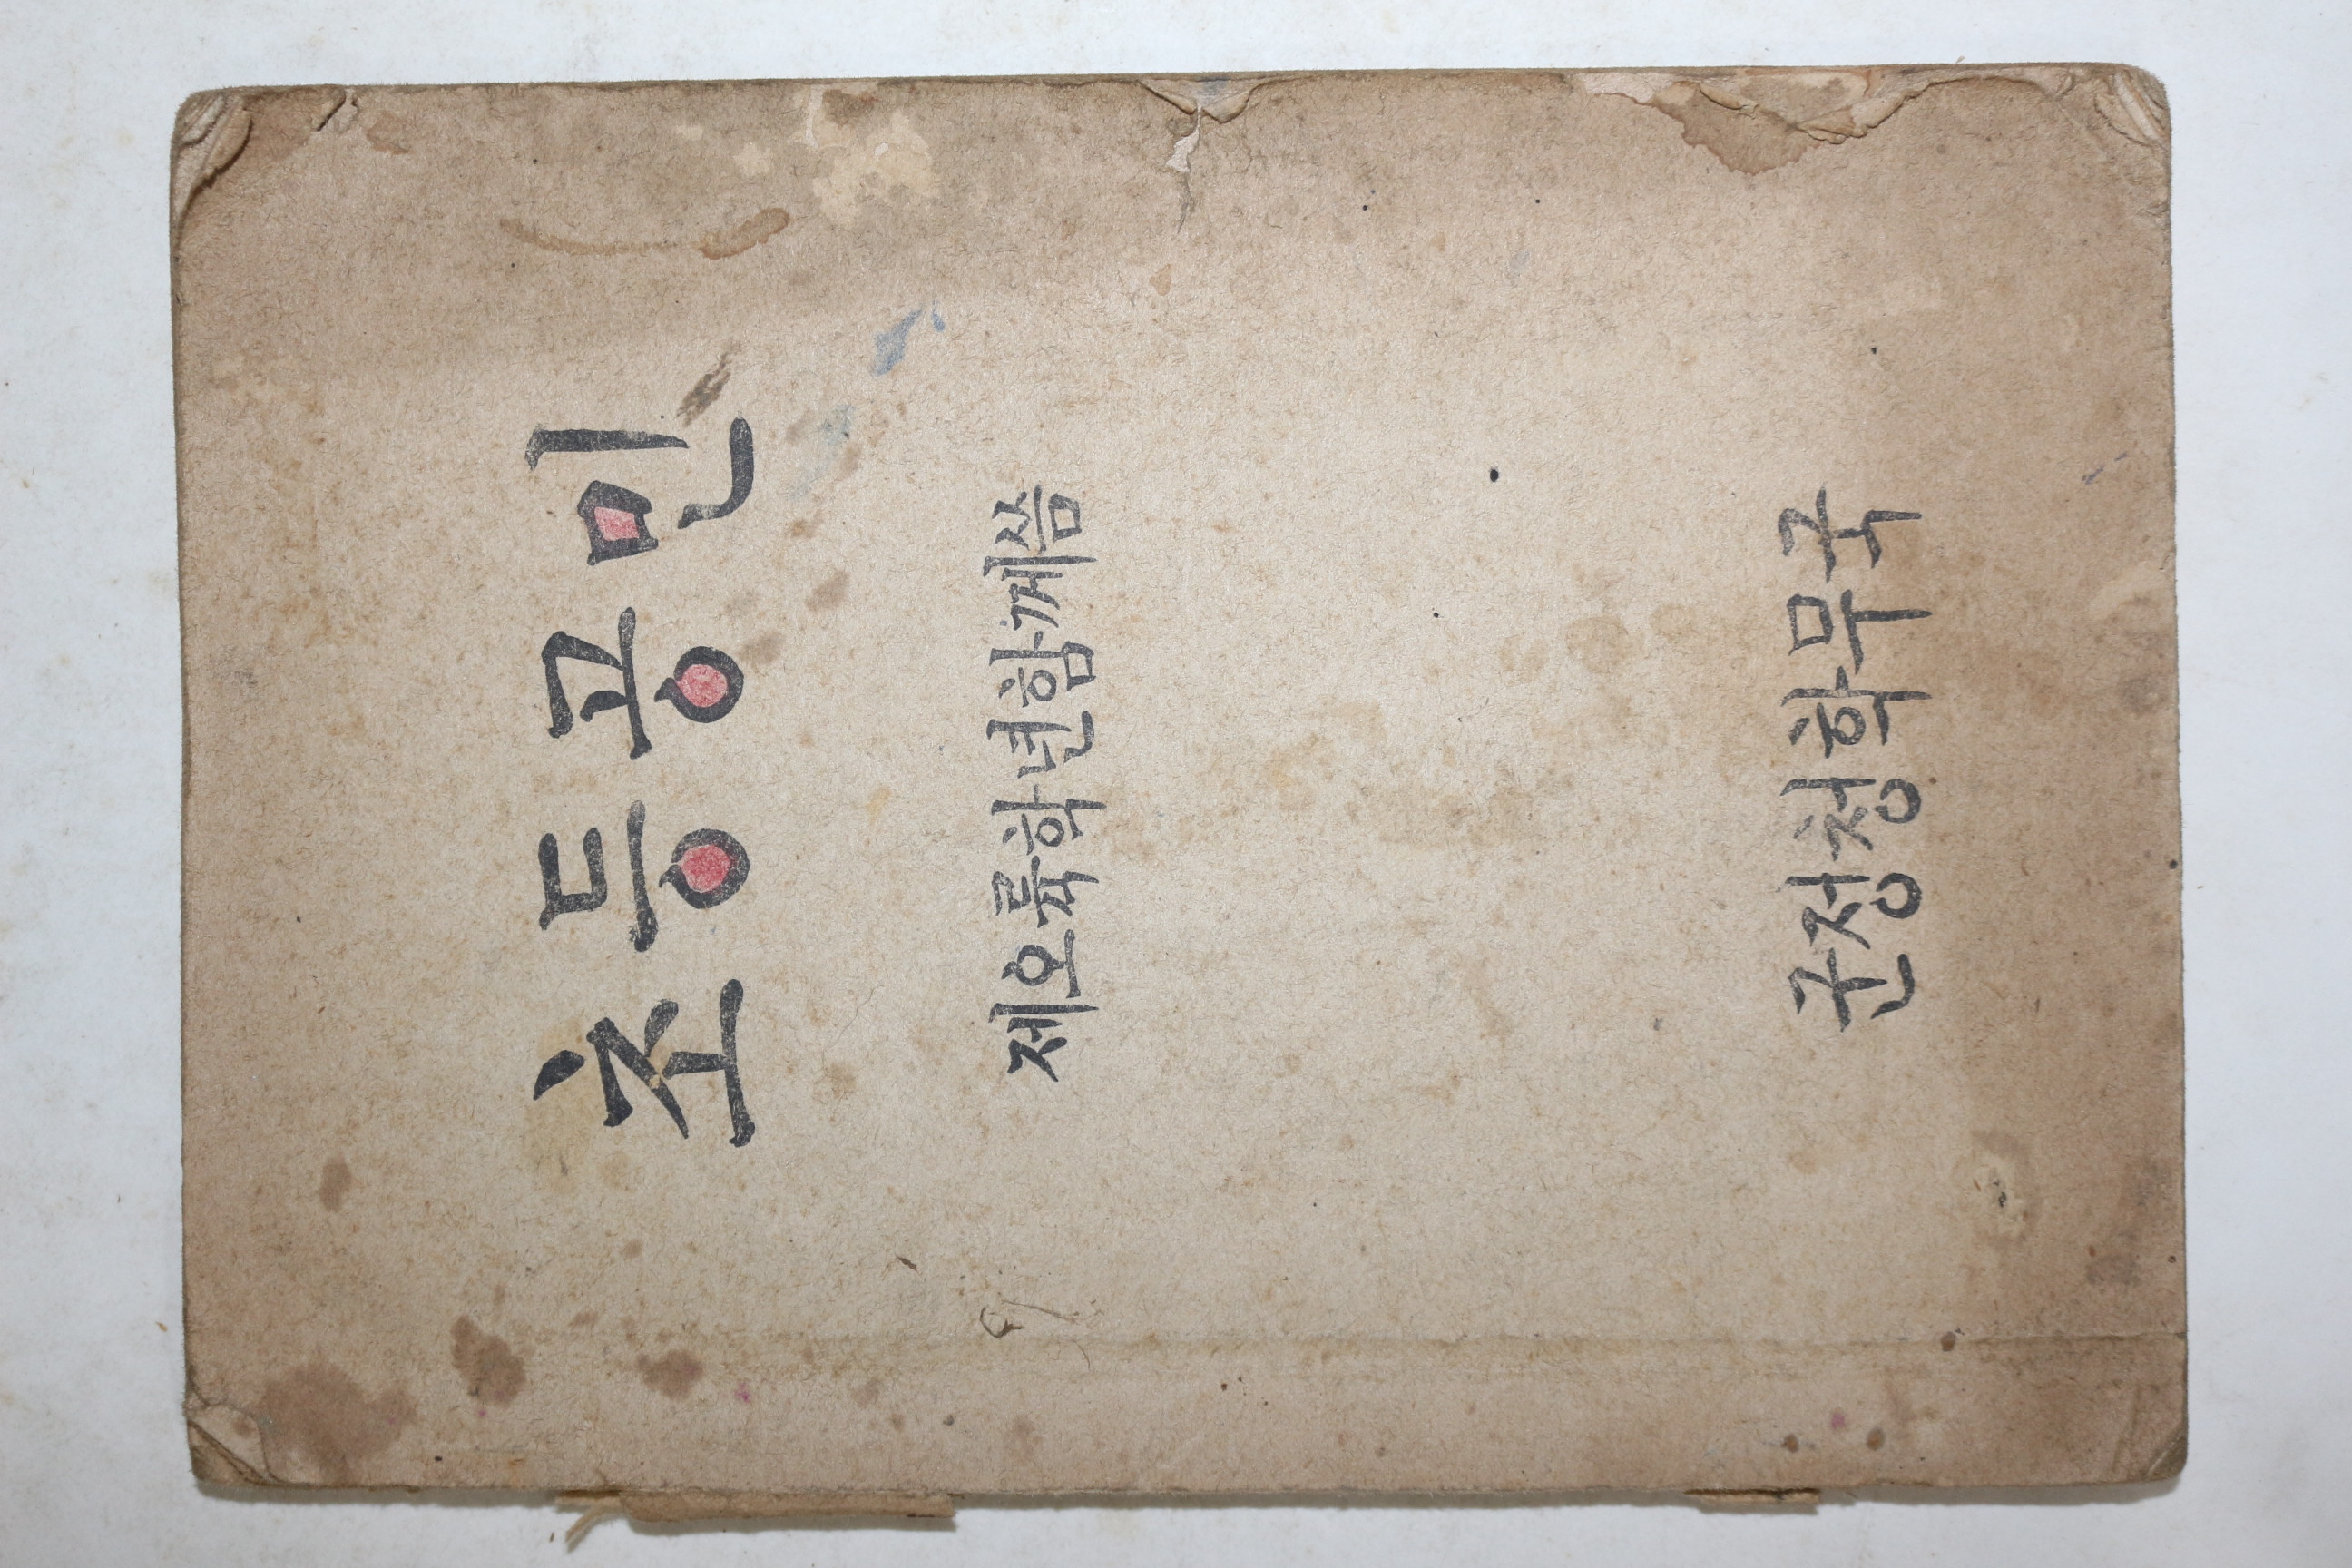 초등공민
제오륙학년함께씀
군정청학무국